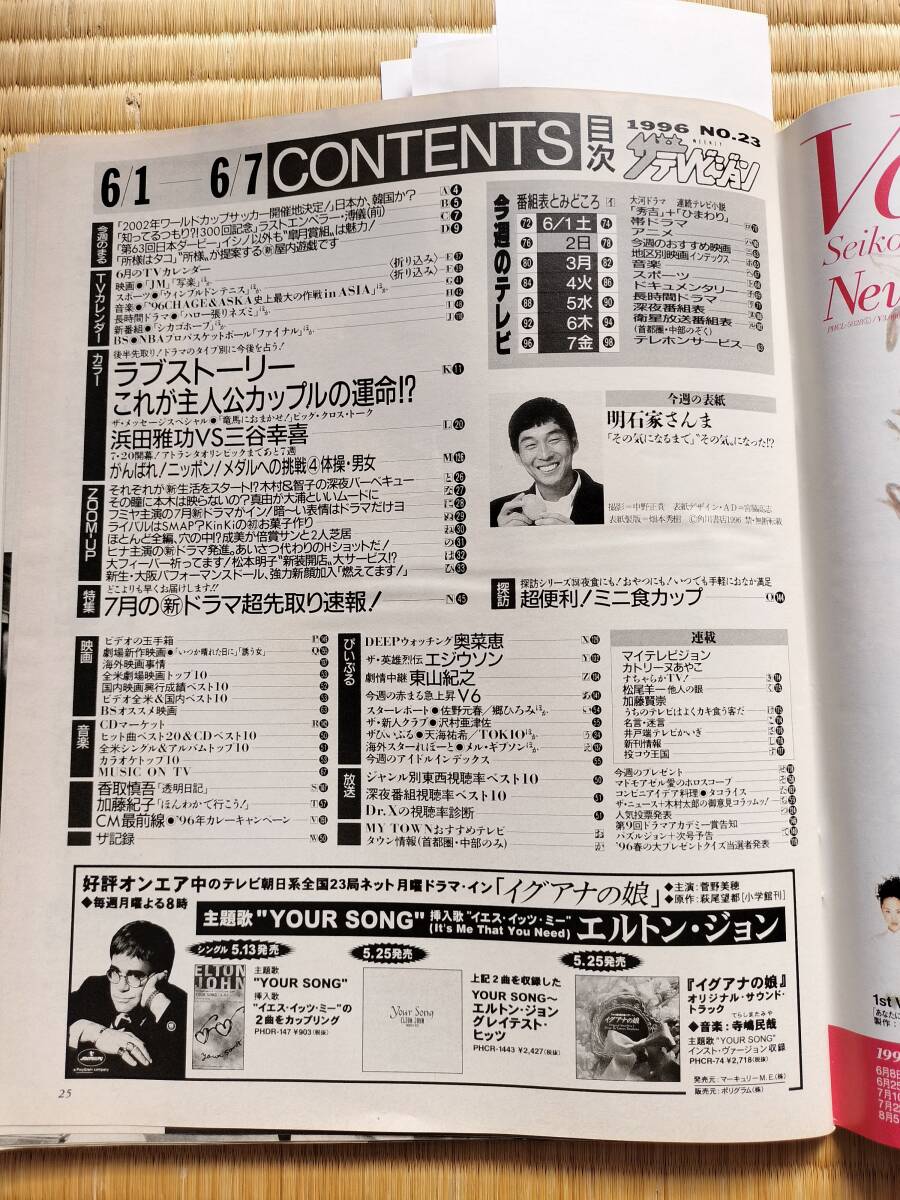 6/1 — 6/7 CONTENTS 目次
1996 NO.23
WEEKLY
ザテレビジョン
今週のまる
「2002年ワールドカップサッカー開催地決定!」日本か、韓国か? A 4
「知ってるつもり?!300回記念」ラストエンペラー・溥儀(前) B 5
「第63回日本ダービー」イシノ以外も"皐月賞組"は魅力! C 7
「所様はタコ」"所様"が提案する新屋内遊戯です D 9
TVカレンダー
6月のTVカレンダー 〈折り込み〉 E 37
映画●「JM」「写楽」ほか 〈折り込み〉 F 39
スポーツ●「ウィンブルドンテニス」ほか G 41
音楽●「'96CHAGE&ASKA史上最大の作戦in ASIA」ほか H 42
長時間ドラマ●「ハロー張りネズミ」ほか I 48
新番組●「シカゴホープ」ほか J
BS●NBAプロバスケットボール「ファイナル」ほか
カラー
後半先取り!ドラマのタイプ別に今後を占う!
ラブストーリー
これが主人公カップルの運命!? K 11
ザ・メッセージスペシャル●「竜馬におまかせ!」ビッグ・クロス・トーク
浜田雅功VS三谷幸喜 L 20
7・20開幕!アトランタオリンピックまであと7週
がんばれ!ニッポン!メダルへの挑戦④体操・男女 M
ZOOM-UP
それぞれが新生活をスタート!?木村&智子の深夜バーベキュー と 26
その瞳に本木は映らないの?真由が大浦といいムードに な 27
フミヤ主演の7月新ドラマがイン!暗〜い表情はドラマだけヨ に 28
ライバルはSMAP?KinKiの初お菓子作り ぬ 29
ほとんど全編、穴の中!?成美が倍賞サンと2人芝居 ね 30
ヒナ主演の新ドラマ発進。あいさつ代わりのHショットだ! の 31
大フィーバー祈ってます!松本明子"新装開店"大サービス!? は 32
新生・大阪パフォーマンスドール、強力新顔加入「燃えてます!」 ひ 33
特集
どこよりも早くお届けします!!
7月の新ドラマ超先取り速報! N 45
今週のテレビ
番組表とみどころ イ
72 6/1土 74
76 2日 78
80 3月 82
84 4火 86
88 5水 90
92 6木 94
96 7金 98
大河ドラマ 連続テレビ小説
「秀吉」+「ひまわり」
帯ドラマ
アニメ
今週のおすすめ映画
地区別映画インデックス
音楽
スポーツ
ドキュメンタリー
長時間ドラマ
深夜番組表
衛星放送番組表
(首都圏・中部のぞく)
テレホンサービス
今週の表紙
明石家さんま
「その気になるまで」"その気"になった!?
撮影=中野正貴 表紙デザイン・AD=宮脇高志
表紙製版=畑本秀樹 ©角川書店1996 禁・無断転載
探訪
探訪シリーズ 夜食にも!おやつにも!いつでも手軽におなか満足
超便利!ミニ食カップ O 144
映画
ビデオの玉手箱 P
劇場新作映画●「いつか晴れた日に」「誘う女」 Q
海外映画事情
全米劇場映画トップ10
国内映画興行成績ベスト10
ビデオ全米&国内ベスト10
BSオススメ映画
音楽
CDマーケット R
ヒット曲ベスト20&CDベスト10
全米シングル&アルバムトップ10
カラオケトップ10
MUSIC ON TV
香取慎吾「透明日記」 S
加藤紀子「ほんわかで行こう!」 T 57
CM最前線●'96年カレーキャンペーン V
ザ記録 W
ぴいぷる
DEEPウォッチング 奥菜恵 X
ザ・英雄烈伝 エジウソン Y
劇情中継 東山紀之 Z
今週の赤まる急上昇 V6 あ
スターレポート●佐野元春/郷ひろみほか
ザ・新人クラブ●沢村亜津佐
ザぴぃぷる●天海祐希/TOKIOほか
海外スターれぽーと●メル・ギブソンほか
今週のアイドルインデックス
放送
ジャンル別東西視聴率ベスト10
深夜番組視聴率ベスト10
Dr.Xの視聴率診断
MY TOWNおすすめテレビ
タウン情報(首都圏・中部のみ)
連載
マイテレビジョン
カトリーヌあやこ
すちゃらかTV!
松尾羊一 他人の眼
加藤賢崇
うちのテレビはよくカキ食う客だ
名言・迷言
井戸端テレビかいぎ
新刊情報
投コウ王国
今週のプレゼント
マドモアゼル愛のホロスコープ
コンビニアイデア料理●タコライス
ザ・ニュース+木村太郎の御意見コラムッ!
人気投票発表
第9回ドラマアカデミー賞告知
パズルジョン+次号予告
'96春の大プレゼントクイズ当選者発表
好評オンエア中のテレビ朝日系全国23局ネット月曜ドラマ・イン「イグアナの娘」
◆主演:菅野美穂
◆原作:萩尾望都[小学館刊]
◆毎週月曜よる8時
主題歌"YOUR SONG" 挿入歌"イエス・イッツ・ミー"(It's Me That You Need) エルトン・ジョン
シングル 5.13発売
ELTON JOHN
主題歌
"YOUR SONG"
挿入歌
"イエス・イッツ・ミー"の
2曲をカップリング
PHDR-147 ¥903(税抜)
5.25発売
Your Song
ELTON JOHN
上記2曲を収録した
YOUR SONG〜
エルトン・ジョン
グレイテスト・
ヒッツ
PHCR-1443 ¥2,427(税抜)
5.25発売
イグアナの娘
『イグアナの娘』
オリジナル・サウンド・
トラック
てらしまたみや
◆音楽:寺嶋民哉
主題歌"YOUR SONG"
インスト・ヴァージョン収録
PHCR-74 ¥2,718(税抜)
発売元:マーキュリーM.E.(株)
販売元:ポリグラム(株)
a PolyGram company
25
Seiko
New
1st
製作:
199
6月8日
6月2
7月1
7月2
8月5